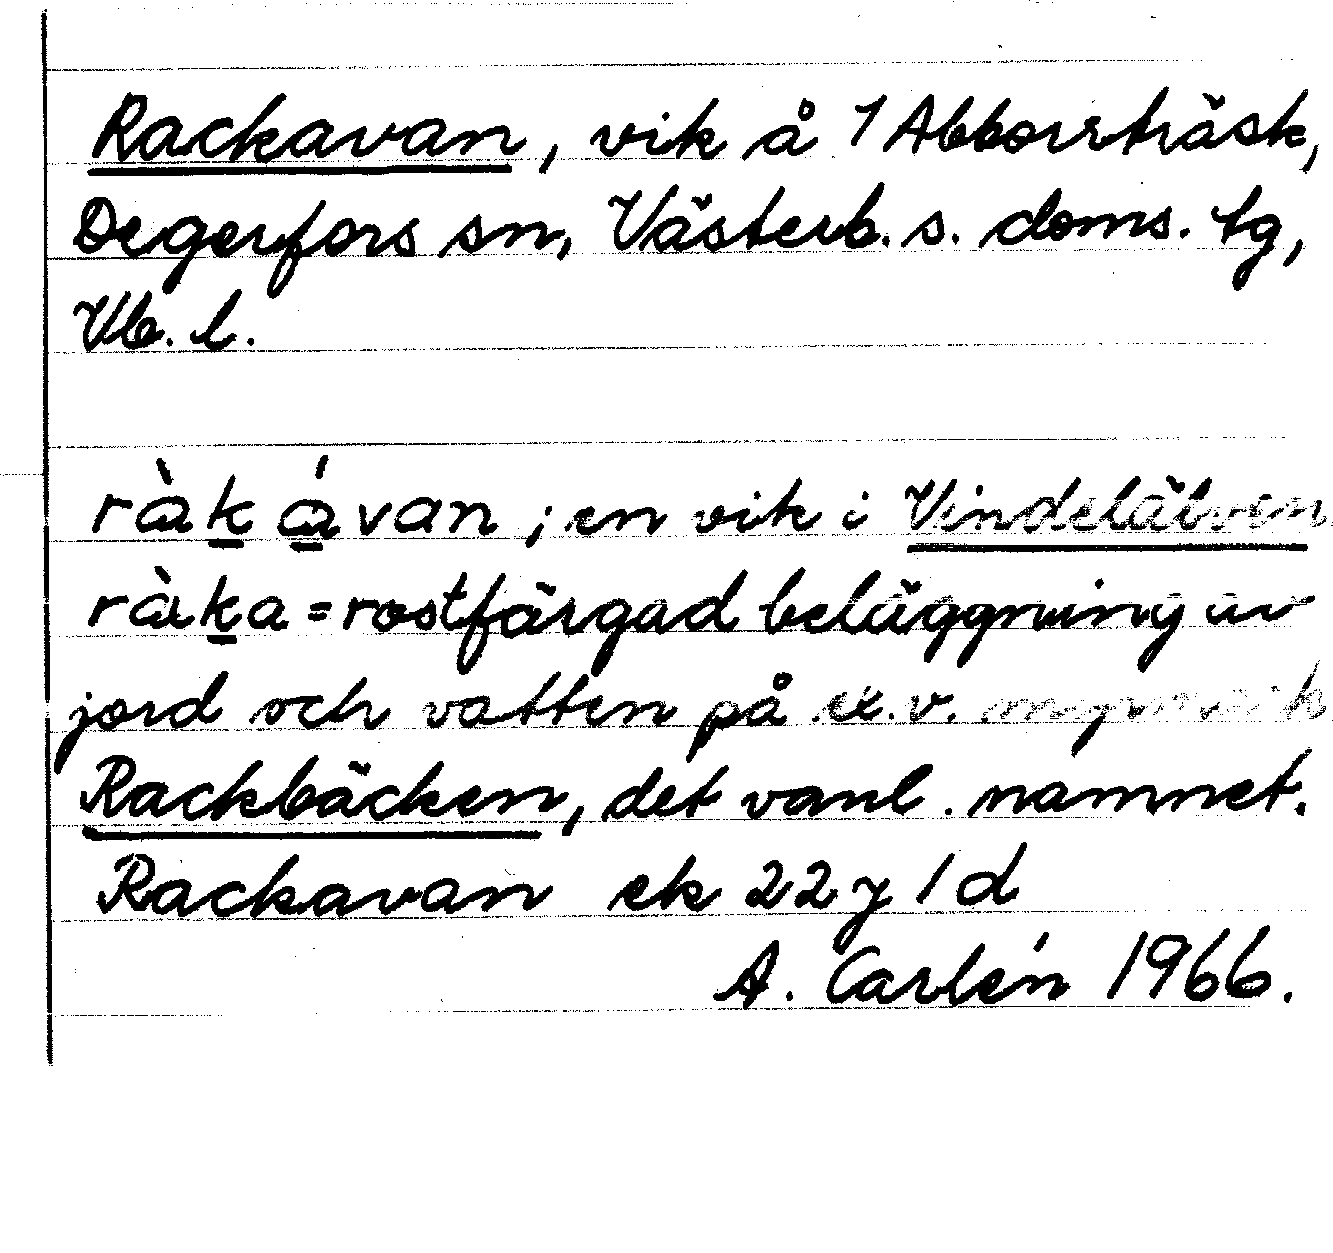 Rackavan, vik å 1 Abborrträsk,
Degerfors sn, Västerb. s. doms. tg,
Vb. l.
ràk ávan ; en vik i Vindelälven
ràka = rostfärgad beläggning av
jord och vatten på ex.v.
Rackbäcken, det vanl. namnet.
Rackavan ek 22 y 1 d
A. Carlén 1966.